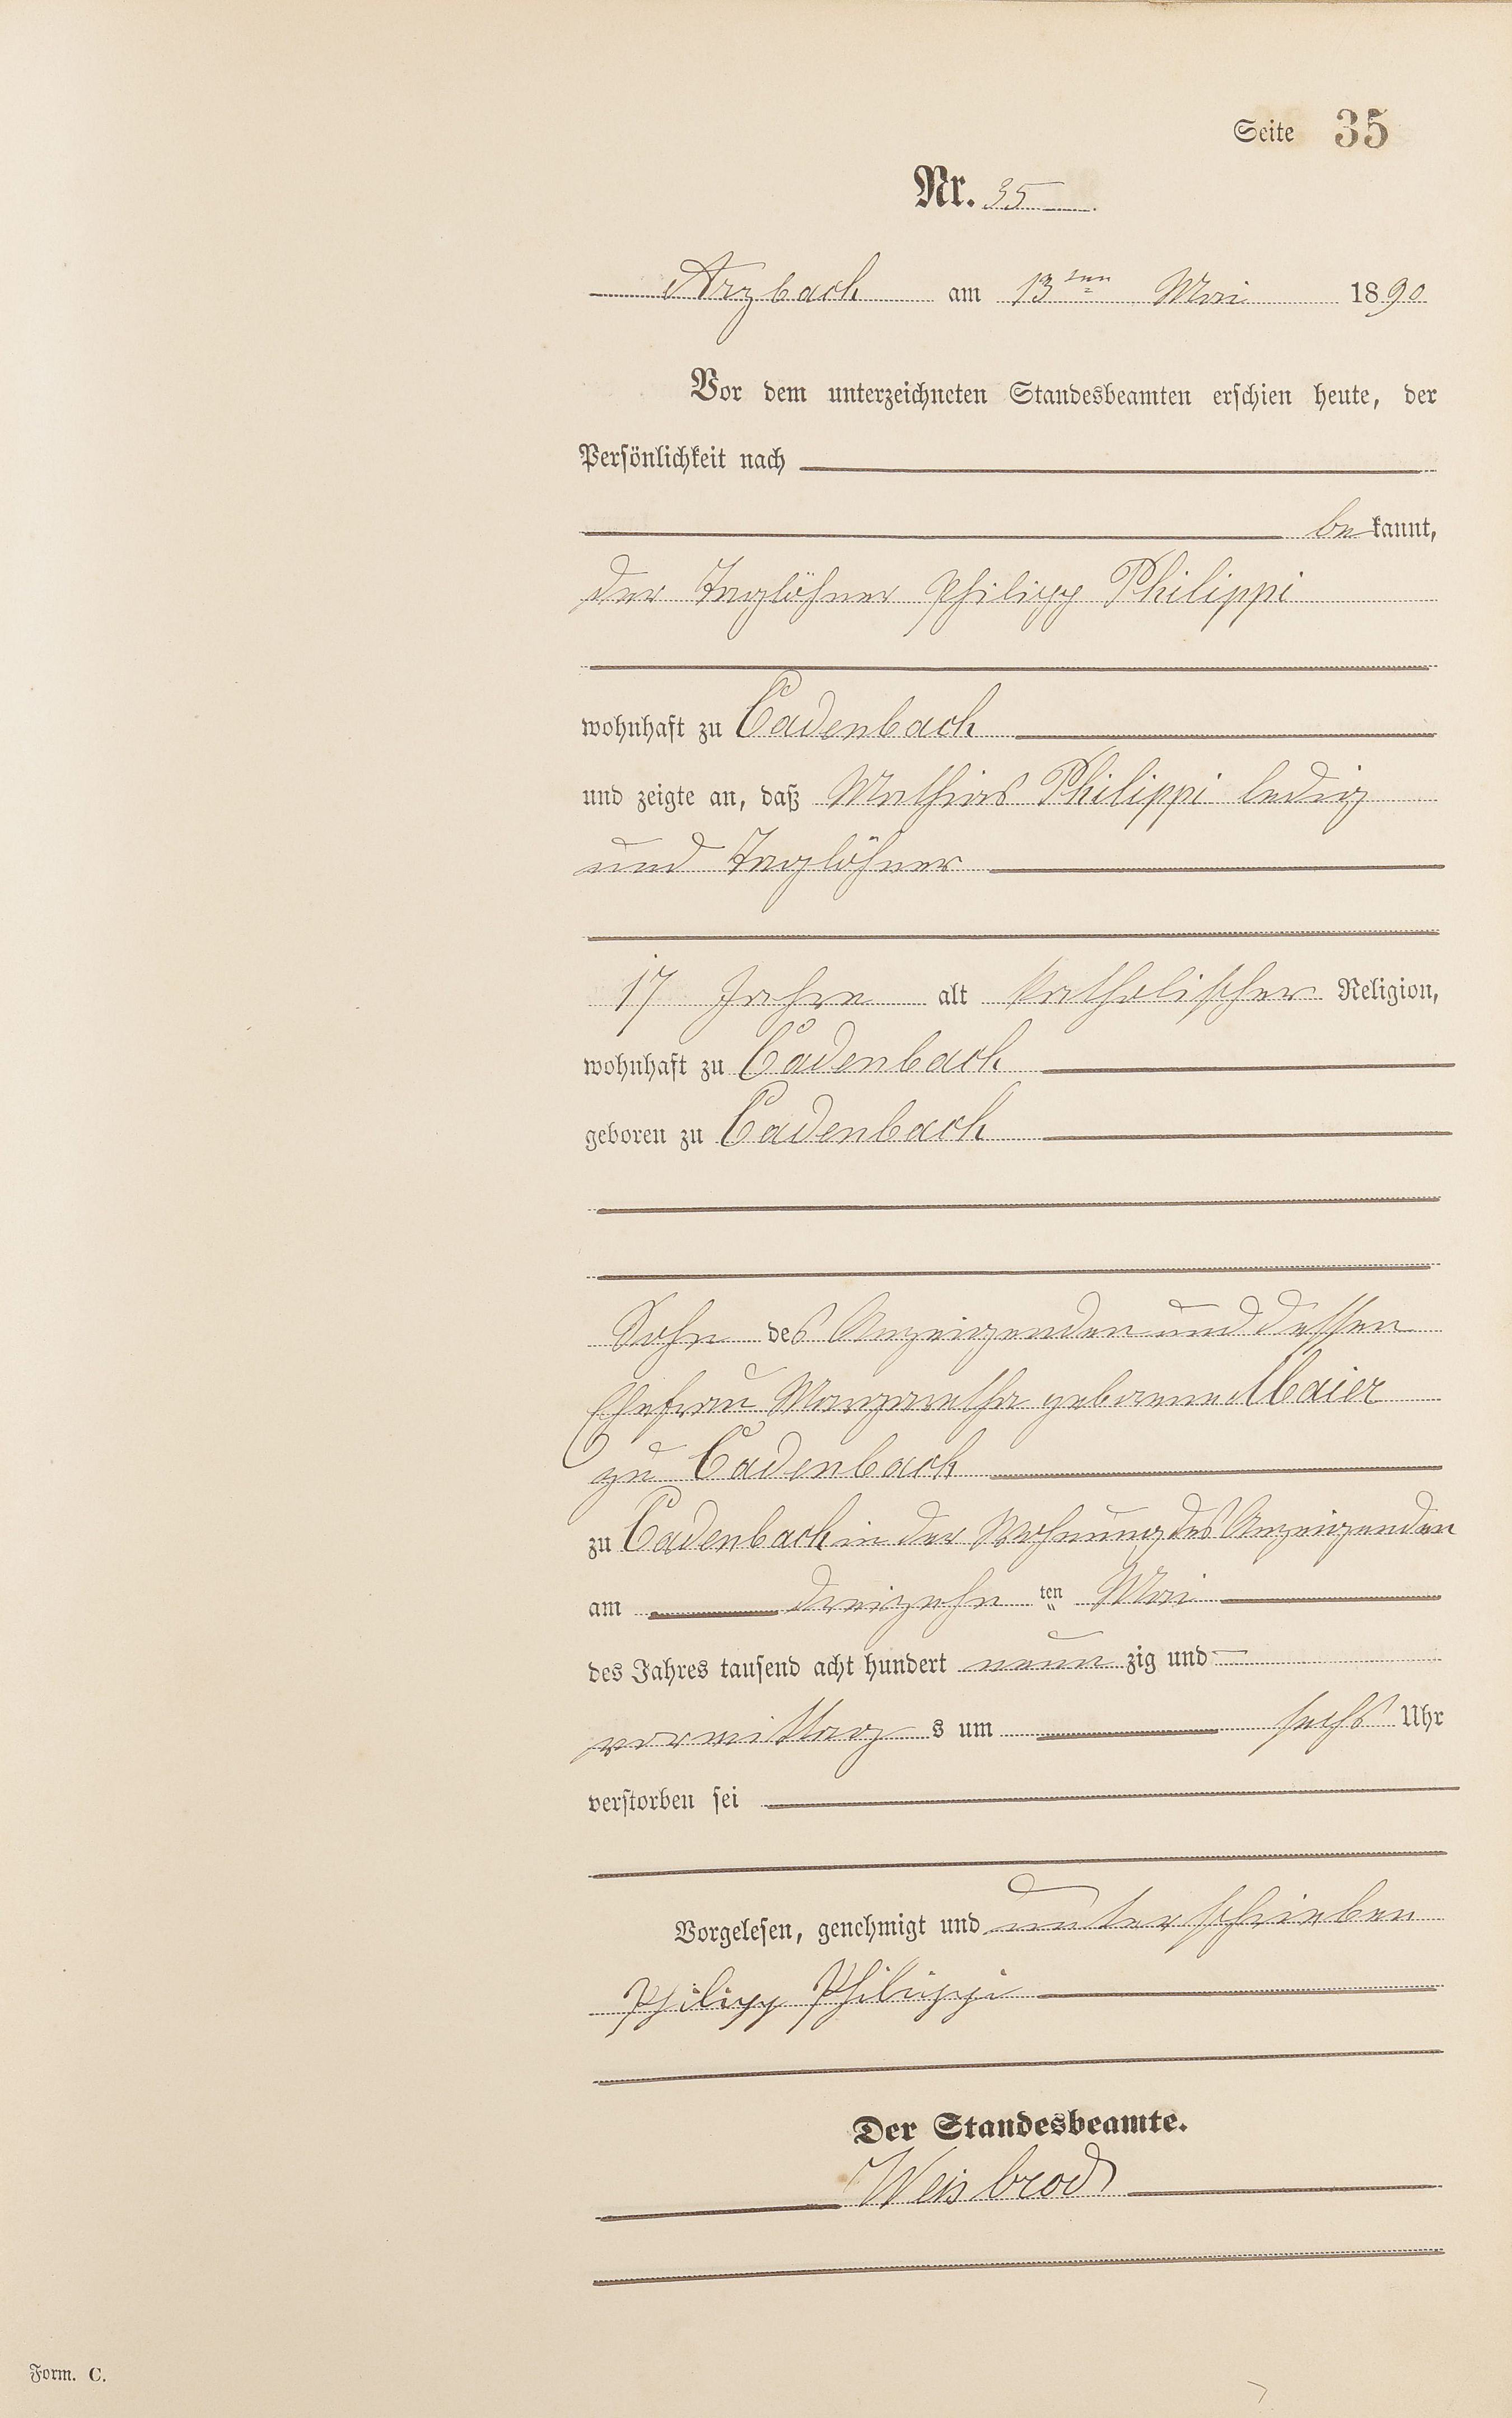 Seite 35
Nr. 35
Arzbach am 13ten Mai 1890
Vor dem unterzeichneten Standesbeamten erschien heute, der
Persönlichkeit nach
bekannt,
der Taglöhner Philipp Philippi
wohnhaft zu Cadenbach
und zeigte an, daß Mathias Philippi ledig
und Taglöhner
17 Jahre alt katholischer Religion,
wohnhaft zu Cadenbach
geboren zu Cadenbach
Sohn des Anzeigenden und dessen
Ehefrau Margaretha geborene Maier
zu Cadenbach
zu Cadenbach in der Wohnung des Anzeigenden
am dreizehnten Mai
des Jahres tausend acht hundert neunzig und
vormittags um sechs Uhr
verstorben sei
Vorgelesen, genehmigt und unterschrieben
Philipp Philippi
Der Standesbeamte.
Weisbrod
Form. C.